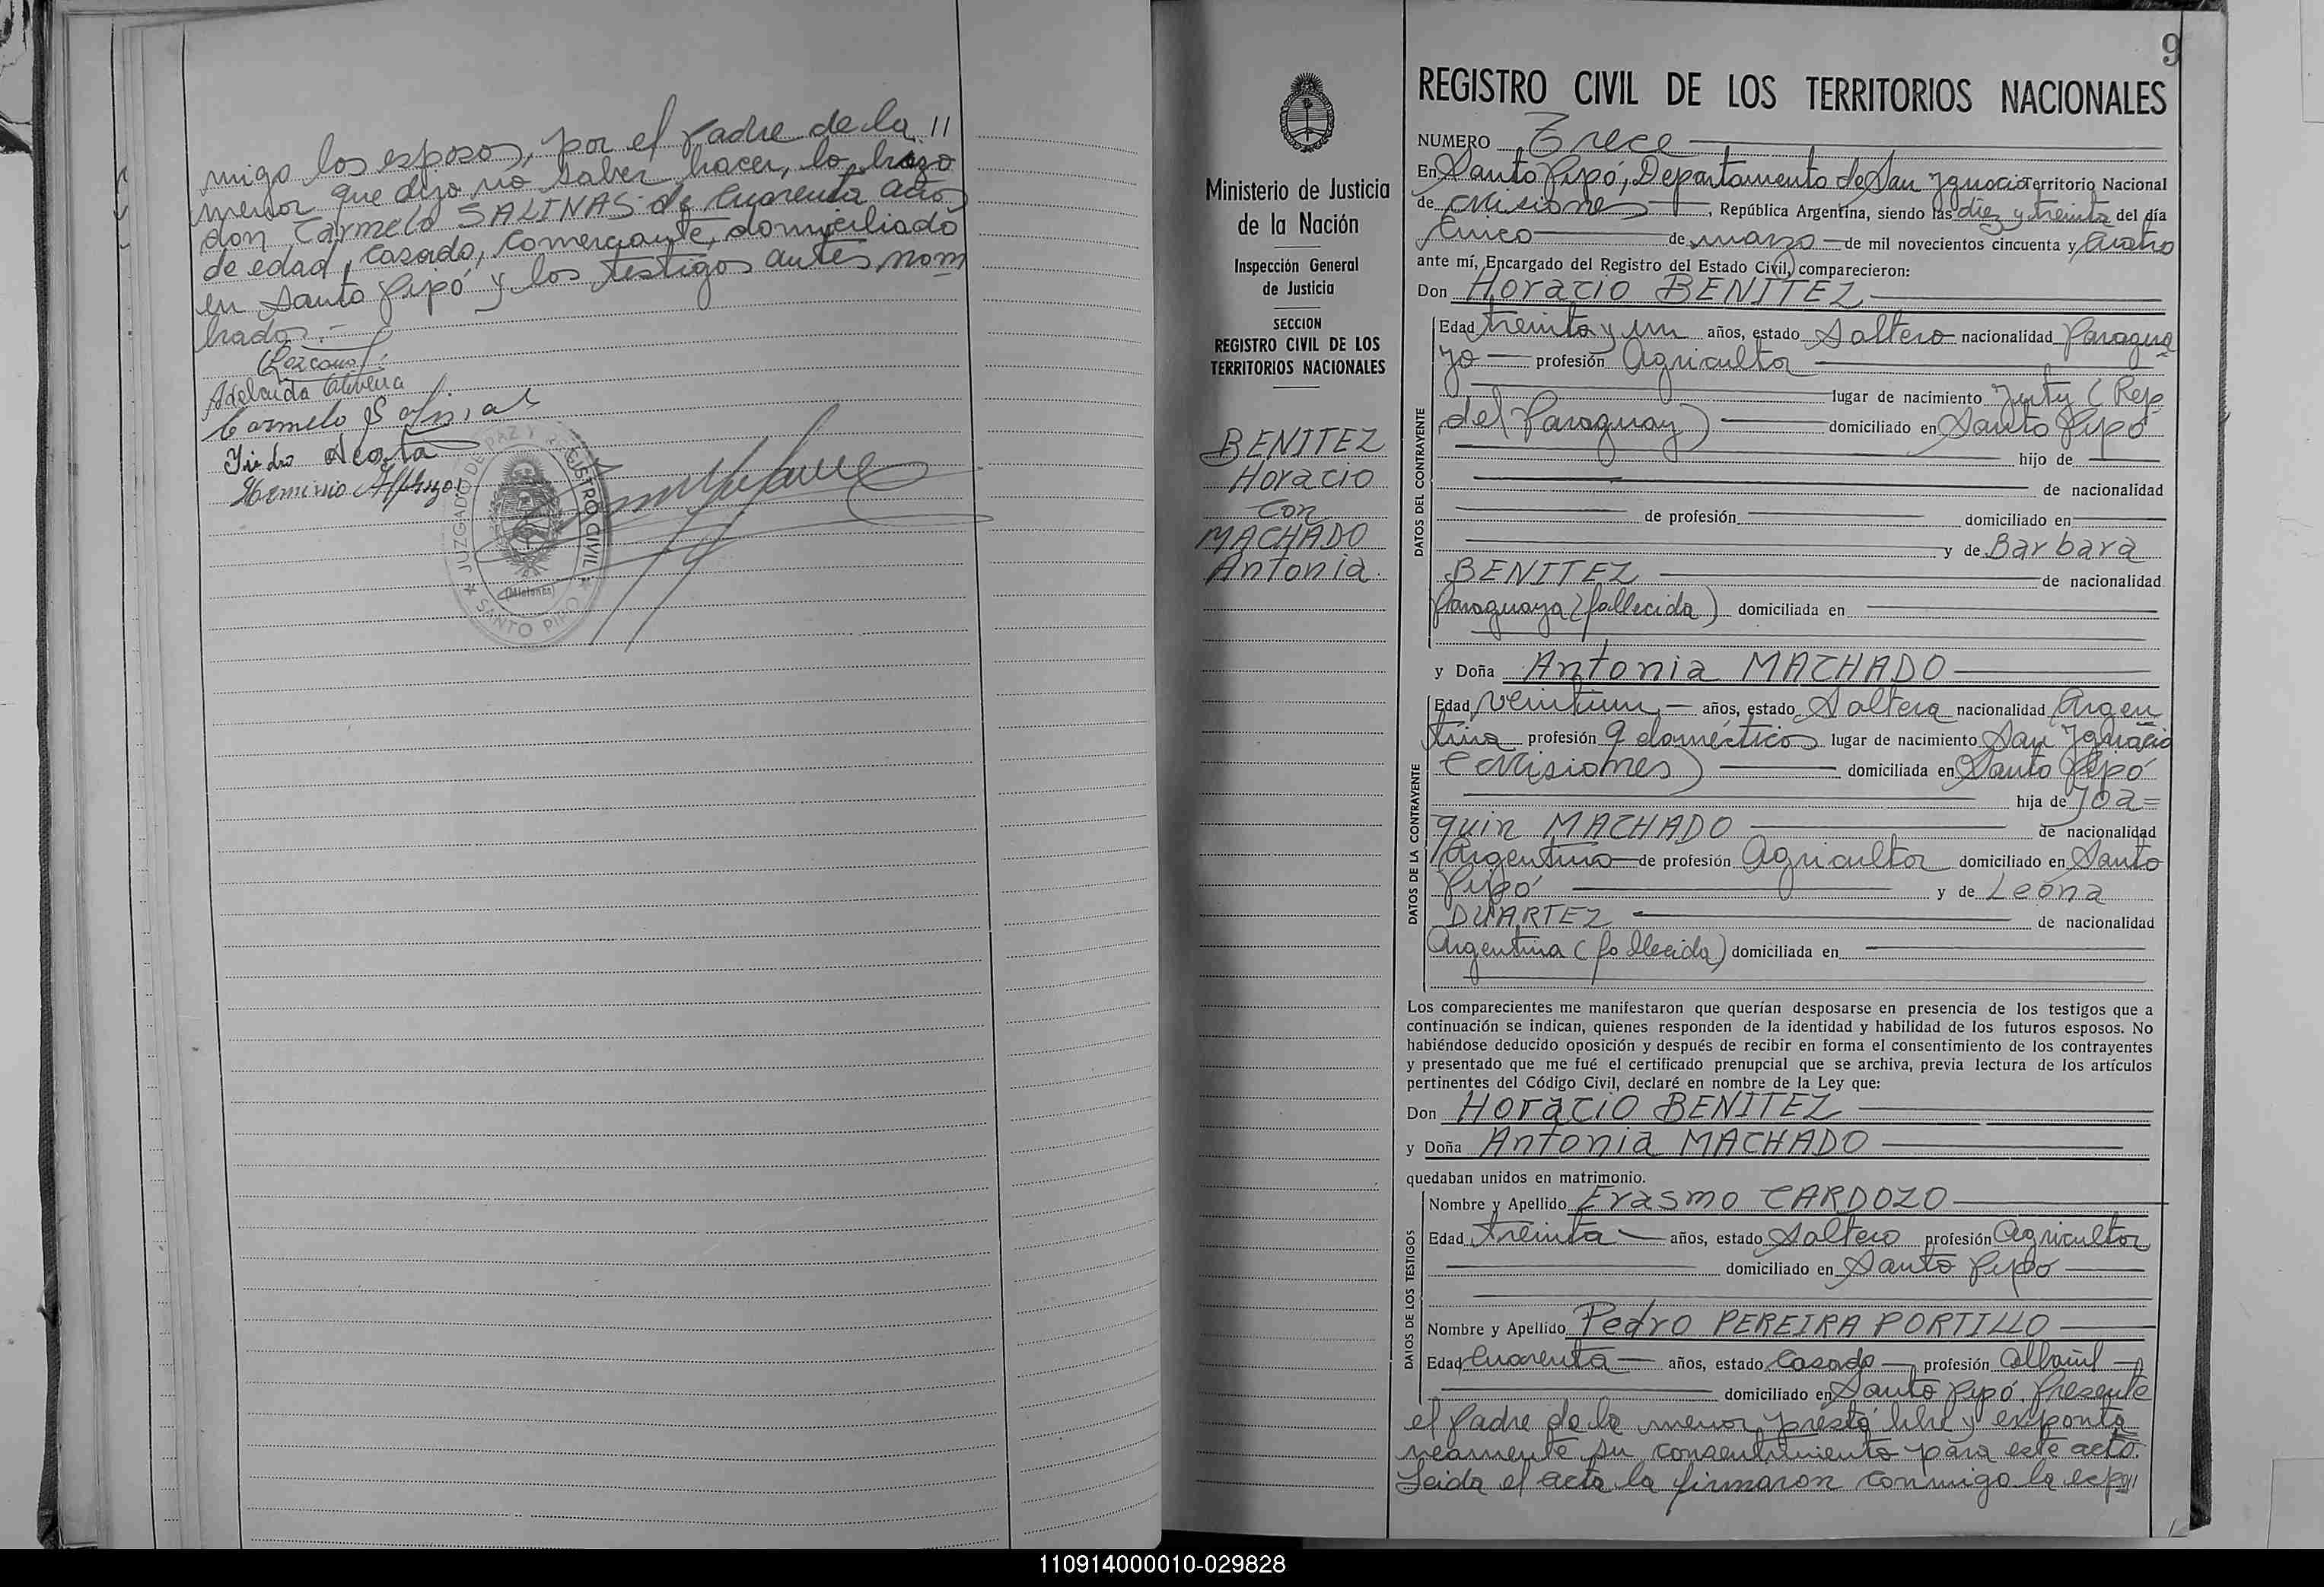 migo los esposos, por el padre de la //
menor que dijo no saber hacer, lo hizo
don Carmelo SALINAS de cuarenta años
de edad, casado, comerciante, domiciliado
en Santo Pipó y los testigos antes nom
brados.-
Lezcano
Adelaida
Carmelo Salinas
Acosta
JUZGADO DE PAZ Y REGISTRO CIVIL
(Misiones)
SANTO PIPO
9
Ministerio de Justicia
de la Nación
Inspección General
de Justicia
SECCION
REGISTRO CIVIL DE LOS
TERRITORIOS NACIONALES
BENITEZ
Horacio
con
MACHADO
Antonia
REGISTRO CIVIL DE LOS TERRITORIOS NACIONALES
NUMERO Trece
En Santo Pipó, Departamento de San Ignacio Territorio Nacional
de Misiones, República Argentina, siendo las diez y treinta del día
cinco de marzo de mil novecientos cincuenta y cuatro
ante mí, Encargado del Registro del Estado Civil, comparecieron:
Don Horacio BENITEZ
DATOS DEL CONTRAYENTE
Edad treinta y un años, estado Soltero nacionalidad Paragua
yo profesión Agricultor
lugar de nacimiento Yuty (Rep
del Paraguay) domiciliado en Santo Pipó
hijo de
de nacionalidad
de profesión domiciliado en
y de Barbara
BENITEZ de nacionalidad
Paraguaya (fallecida) domiciliada en
y Doña Antonia MACHADO
DATOS DE LA CONTRAYENTE
Edad veintiun años, estado Soltera nacionalidad Argen
tina profesión q domésticos lugar de nacimiento San Ignacio
(Misiones) domiciliada en Santo Pipó
hija de Joa=
quin MACHADO de nacionalidad
Argentino de profesión Agricultor domiciliado en Santo
Pipó y de Leona
DUARTEZ de nacionalidad
Argentina (fallecida) domiciliada en
Los comparecientes me manifestaron que querían desposarse en presencia de los testigos que a
continuación se indican, quienes responden de la identidad y habilidad de los futuros esposos. No
habiéndose deducido oposición y después de recibir en forma el consentimiento de los contrayentes
y presentado que me fué el certificado prenupcial que se archiva, previa lectura de los artículos
pertinentes del Código Civil, declaré en nombre de la Ley que:
Don Horacio BENITEZ
y Doña Antonia MACHADO
quedaban unidos en matrimonio.
DATOS DE LOS TESTIGOS
Nombre y Apellido Erasmo CARDOZO
Edad treinta años, estado Soltero profesión Agricultor
domiciliado en Santo Pipó
Nombre y Apellido Pedro PEREIRA PORTILLO
Edad Cuarenta años, estado Casado profesión Albañil
domiciliado en Santo Pipó. Presente
el padre de la menor prestó libre y exponta
neamente su consentimiento para este acto.
Leida el acta la firmaron conmigo la espo//
110914000010-029828